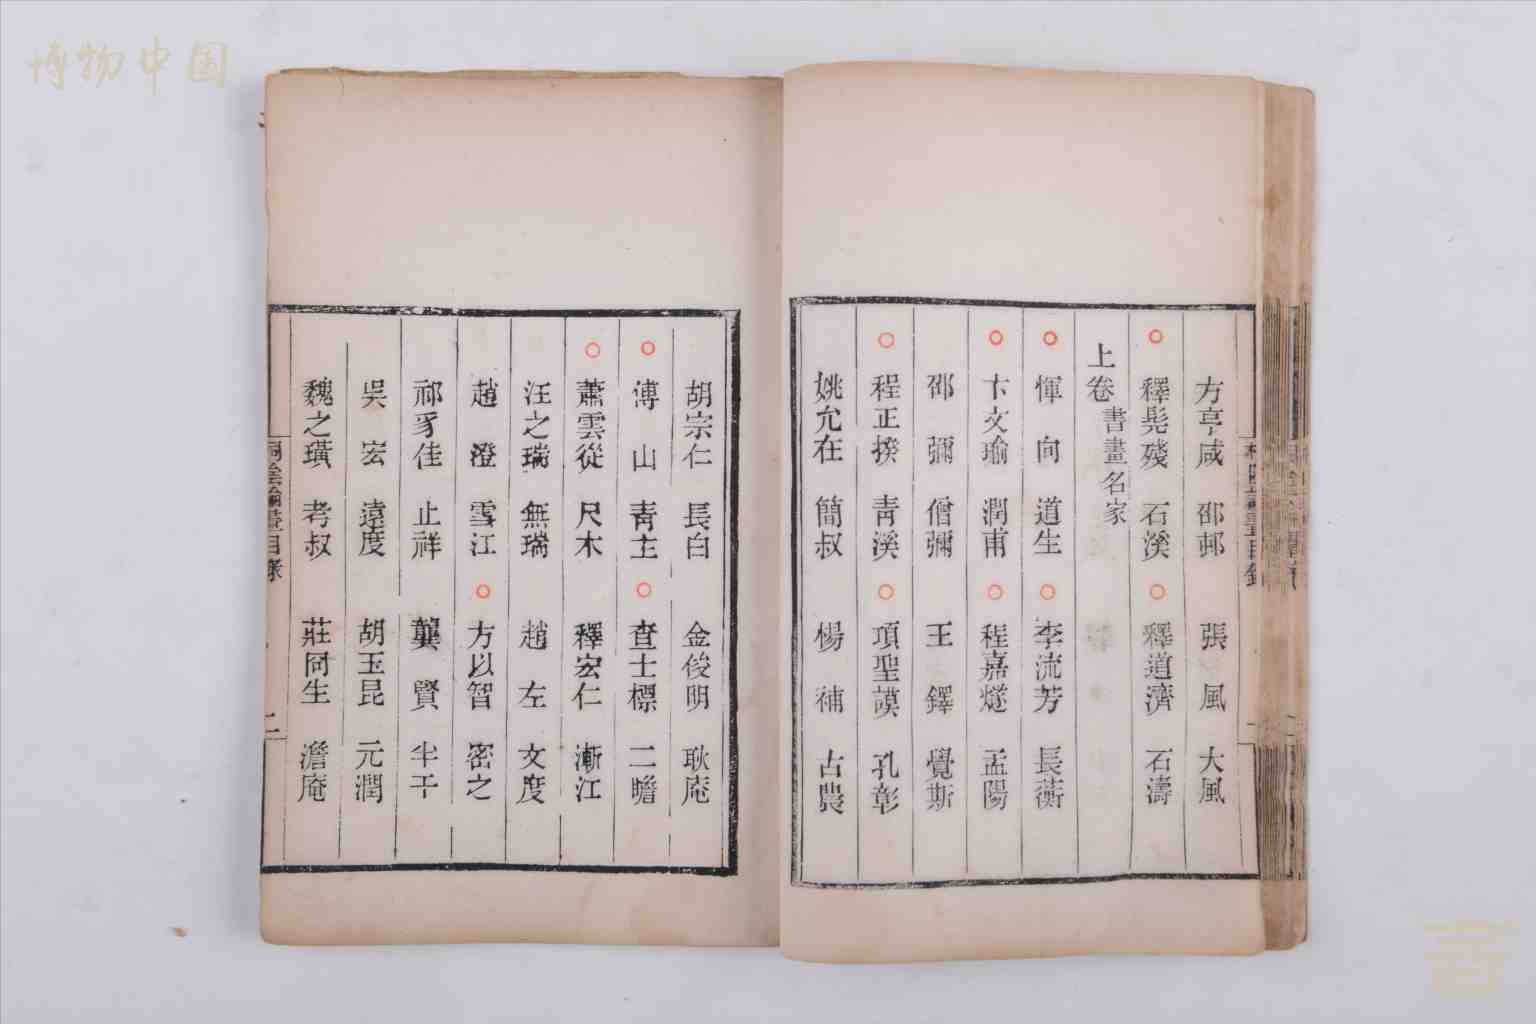 博物中国
方亨咸 邵邨 張風 大風
○釋髡殘 石溪 ○釋道濟 石濤
上卷 書畫名家
○惲向 道生 ○李流芳 長蘅
○卞文瑜 潤甫 ○程嘉燧 孟陽
邵彌 僧彌 王鐸 覺斯
○程正揆 青溪 ○項聖謨 孔彰
姚允在 簡叔 楊補 古農
胡宗仁 長白 金俊明 耿庵
○傅山 青主 ○查士標 二瞻
○蕭雲從 尺木 釋宏仁 漸江
汪之瑞 無瑞 趙左 文度
趙澄 雪江 ○方以智 密之
祁豸佳 止祥 龔賢 半千
吳宏 遠度 胡玉昆 元潤
魏之璜 考叔 莊冏生 澹庵
桐陰論畫目錄 二